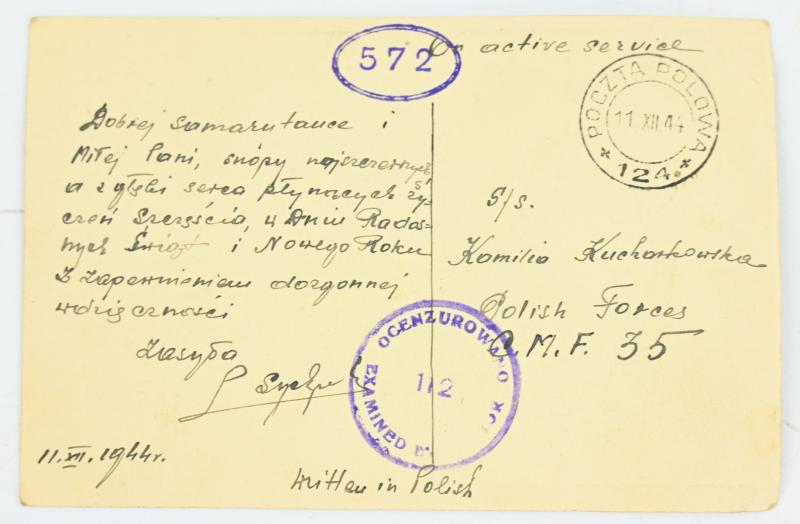 572
On active service
POCZTA POLOWA
11 XII.44
* 124. *
Dobrej samarytance i
Miłej Pani, snopy najszczerszych
a z głębi serca płynących ży-
czeń Szczęścia, w Dniu Rados-
nych Świąt i Nowego Roku
z zapewnieniem dozgonnej
wdzięczności
zasyła
11.XII.1944r.
S/s.
Kamilia Kucharkowska
Polish Forces
C.M.F. 35
OCENZUROWANO
112
EXAMINED
written in Polish